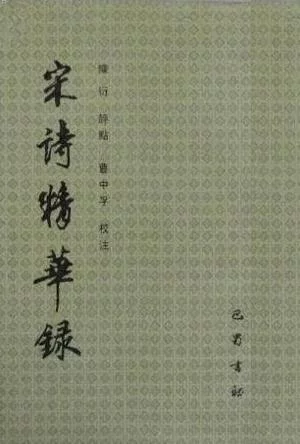 陳衍 評點 曹中孚 校注
宋詩精華録
巴蜀書社